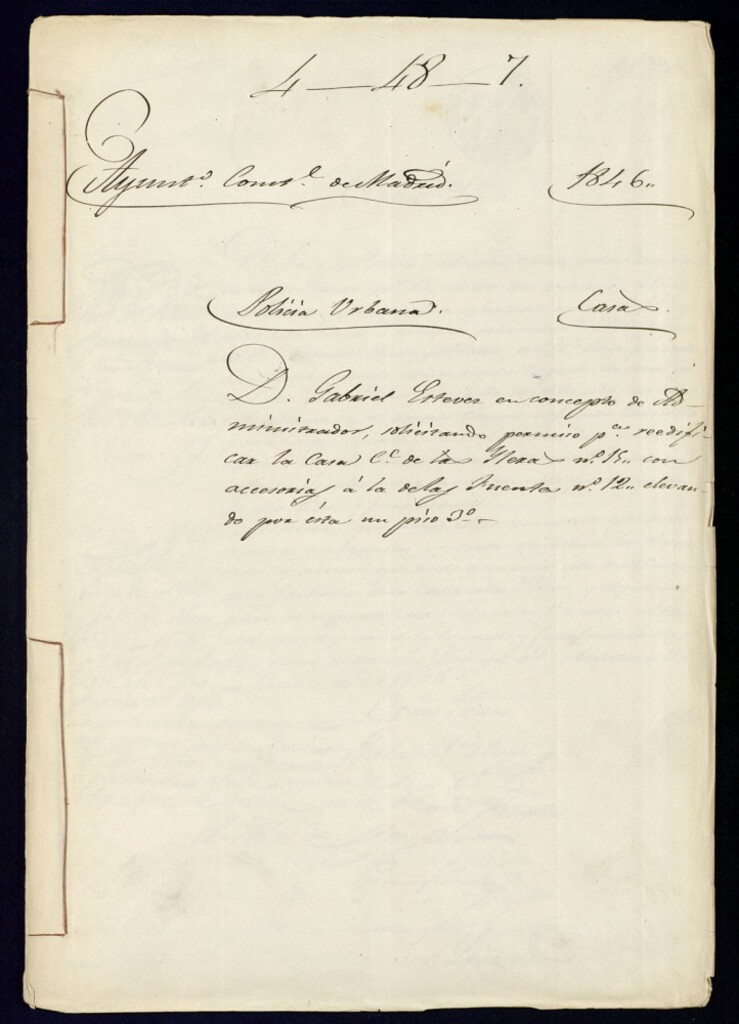 4 — 48 — 7.
Ayunt.º Const.l de Madrid. 1846.,
Policia Urbana. Casas.
D. Gabriel Estevez en concepto de Ad-
ministrador, solicitando permiso p.a reedifi-
car la Casa C.e de las n.º 15,, con
accesorias á la de las Fuentes n.º 12,, elevan-
do por ésta un piso 3.º